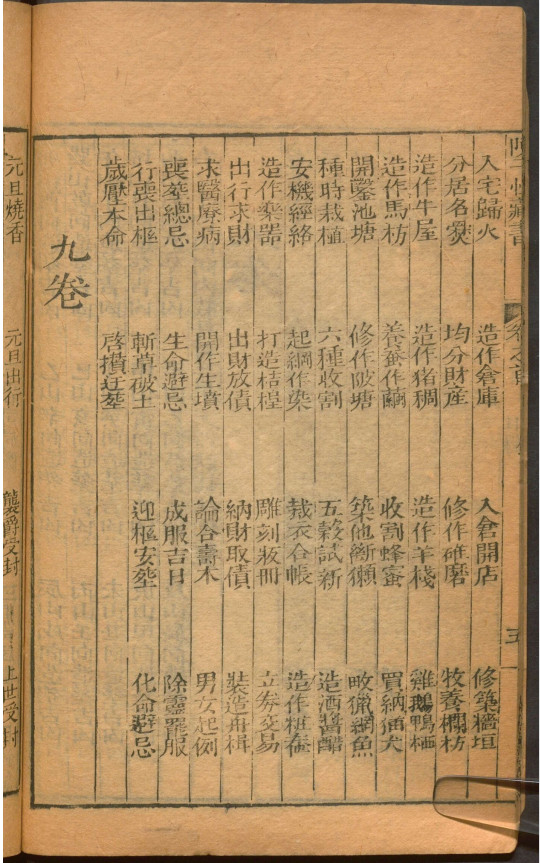 卷之首 五
入宅歸火 造作倉庫 入倉開店 修築牆垣
分居各爨 均分財産 修作碓磨 牧養欄枋
造作牛屋 造作猪稠 造作羊棧 雞鵝鴨栖
造作馬枋 養蚕作繭 收割蜂蜜 買納猫犬
開鑿池塘 修作陂塘 築池斷獺 畋獵網魚
種時栽植 六種收割 五穀試新 造酒醬醋
安機經絡 起綱作染 裁衣合帳 造作粧奩
造作樂器 打造桔槔 雕刻板冊 立券交易
出行求財 出財放債 納財取債 裝造舟楫
求醫療病 開作生墳 論合壽木 男女起例
喪塟總忌 生命避忌 成服吉日 除靈罷服
行喪出柩 斬草破土 迎柩安塟 化命避忌
歲壓本命 啓攢迁塟
九卷
元旦燒香 元旦出行 襲爵受封 上世受封